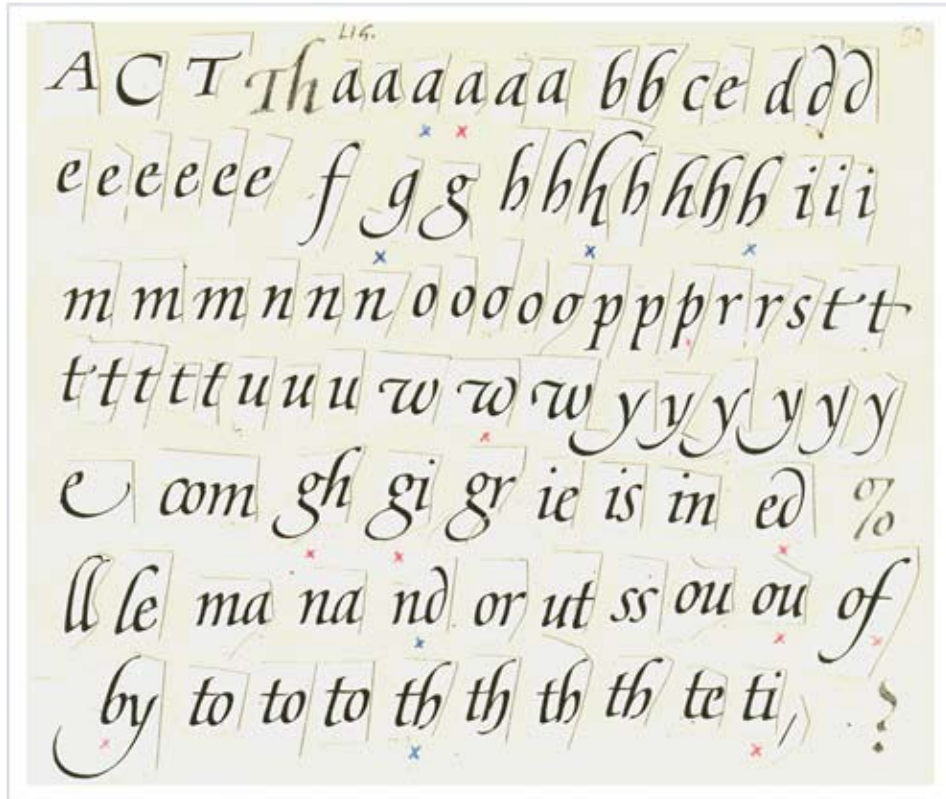 LIG.
A C T Th a a a a a a b b c e d d d
e e e e e e f g g h h h h h h h i i i
m m m n n n o o o o o p p p r r s t t
t t t t t u u u w w w y y y y y y
e com gh gi gr ie is in ed %
ll le ma na nd or ut ss ou ou of
by to to to th th th th te ti, ?